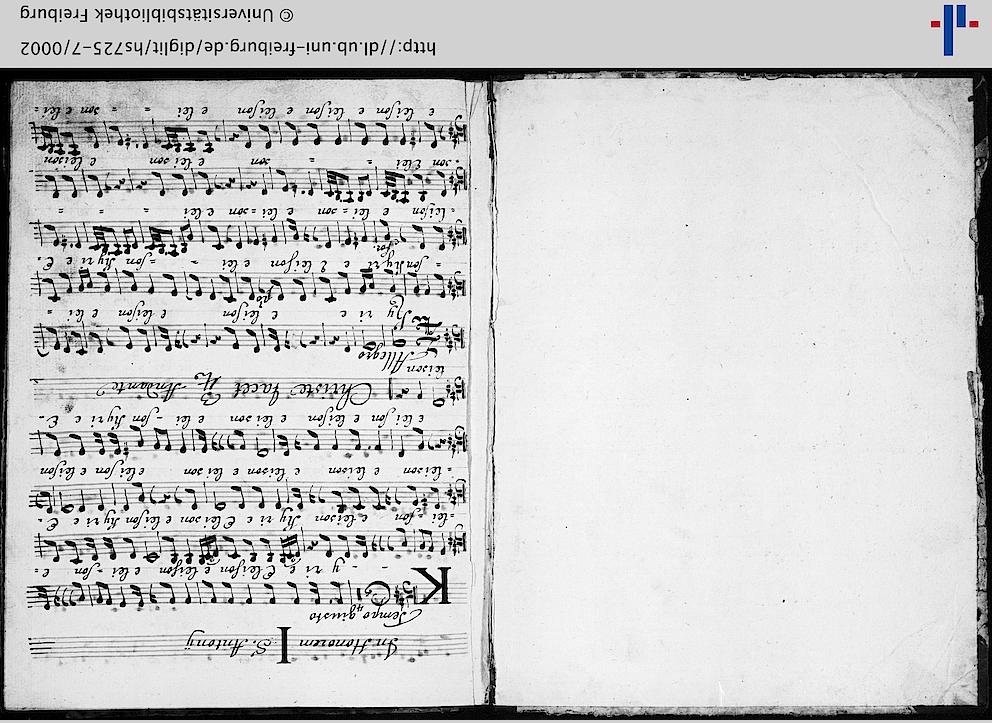 In Honorem I S. Antonÿ
Tempo giusto
K - y ri e Eleison e eleison e lei - son e
lei - son e leison Ky ri e Eleison e leison Ky ri e E
leison e leison e leison e leison e leison e leison
e lei son e leison e leison e lei - son Kyri e E
Christe tacet Andante
leison
Allegro
Ky ri e e leison e leison e lei =
= son Kyri e e leison e lei - - son Kyri e E
leison e lei = son e lei = son e lei - - -
- son E lei = = son e leison e leison
e leison e leison e leison e lei - = son e lei =
http://dl.ub.uni-freiburg.de/diglit/hs725-7/0002
© Universitätsbibliothek Freiburg